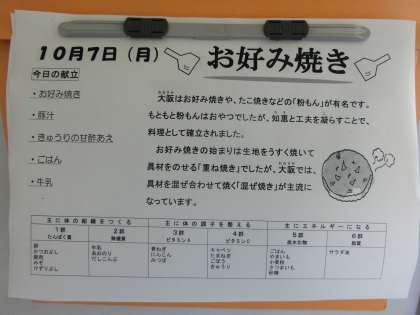 10月7日（月）
お好み焼き
今日の献立
・お好み焼き
・豚汁
・きゅうりの甘酢あえ
・ごはん
・牛乳
大阪はお好み焼きや、たこ焼きなどの「粉もん」が有名です。
もともと粉もんはおやつでしたが、知恵と工夫を凝らすことで、
料理として確立されました。
お好み焼きの始まりは生地をうすく焼いて
具材をのせる「重ね焼き」でしたが、大阪では、
具材を混ぜ合わせて焼く「混ぜ焼き」が主流に
なっています。
主に体の組織をつくる 主に体の調子を整える 主にエネルギーになる
1群 2群 3群 4群 5群 6群
たんぱく質 無機質 ビタミンA ビタミンC 炭水化物 脂質
卵 牛乳 青ねぎ キャベツ ごはん サラダ油
かつおぶし あおのり にんじん たまねぎ やまいも
豚肉 だしこんぶ みつば ごぼう 小麦粉
みそ きゅうり さつまいも
けずりぶし 砂糖